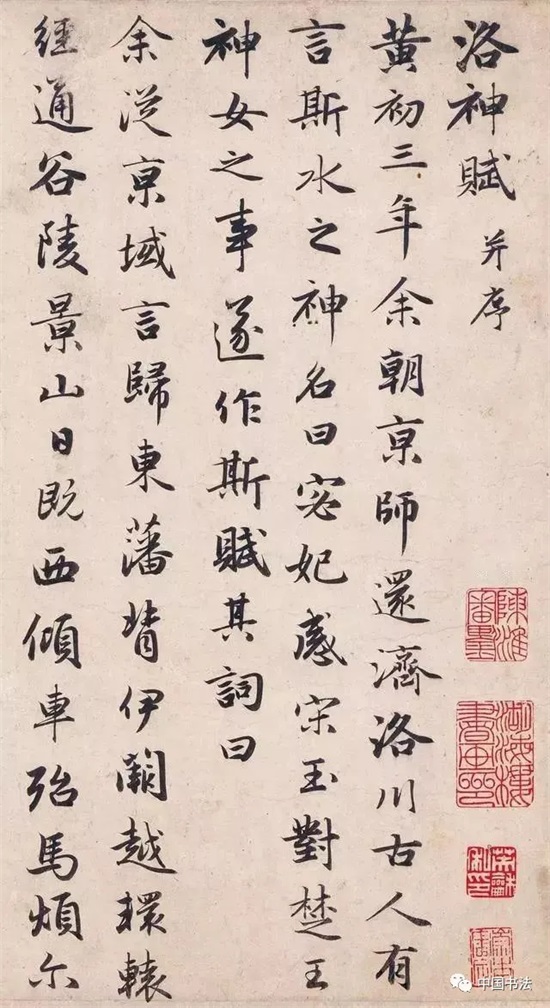 洛神賦 并序
黄初三年余朝京師還濟洛川古人有
言斯水之神名曰宓妃感宋玉對楚王
神女之事遂作斯賦其詞曰
余從京域言歸東藩背伊闕越轘轅
經通谷陵景山日既西傾車殆馬煩尓
中国书法